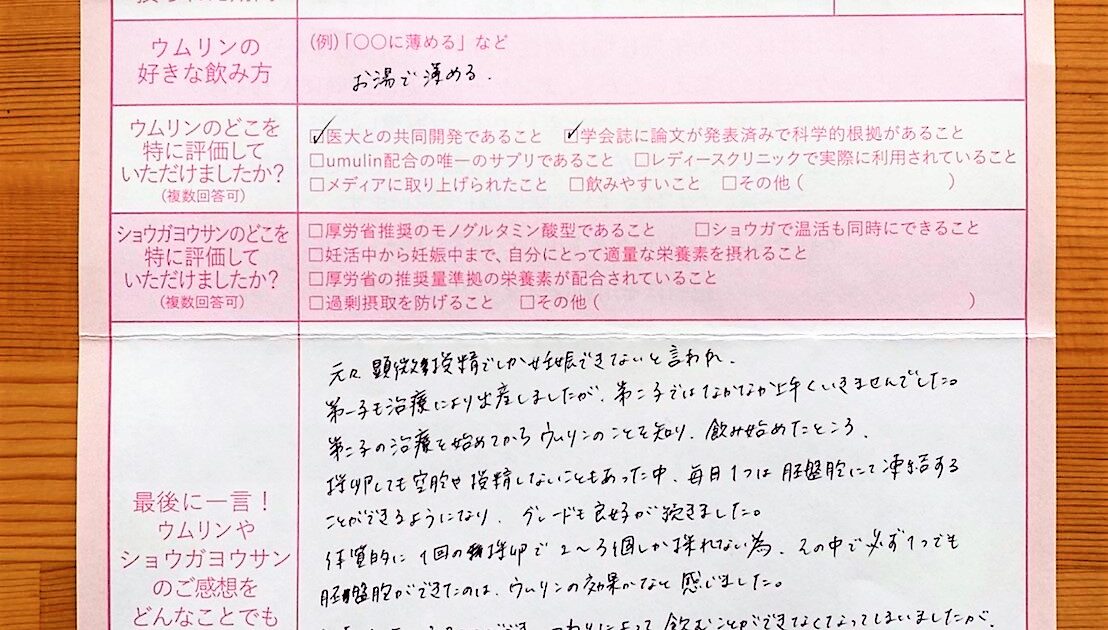 ウムリンの
好きな飲み方
(例)「〇〇に薄める」など
お湯で薄める.
ウムリンのどこを
特に評価して
いただけましたか?
(複数回答可)
☑医大との共同開発であること ☑学会誌に論文が発表済みで科学的根拠があること
□umulin配合の唯一のサプリであること □レディースクリニックで実際に利用されていること
□メディアに取り上げられたこと □飲みやすいこと □その他 ( )
ショウガヨウサンのどこを
特に評価して
いただけましたか?
(複数回答可)
□厚労省推奨のモノグルタミン酸型であること □ショウガで温活も同時にできること
□妊活中から妊娠中まで、自分にとって適量な栄養素を摂れること
□厚労省の推奨量準拠の栄養素が配合されていること
□過剰摂取を防げること □その他 ( )
最後に一言!
ウムリンや
ショウガヨウサン
のご感想を
どんなことでも
元々顕微授精でしか妊娠できないと言われ、
第一子も治療により出産しましたが、第二子ではなかなか上手くいきませんでした。
第二子の治療を始めてからウムリンのことを知り、飲み始めたところ、
採卵しても空胞や授精しないこともあった中、毎日1つは胚盤胞にて凍結する
ことができるようになり、グレードも良好が続きました。
体質的に1回の採卵で2〜3個しか採れない為、その中で必ず1つでも
胚盤胞ができたのは、ウムリンの効果かなと感じました。
つわりによって飲むことができなくなってしまいましたが、